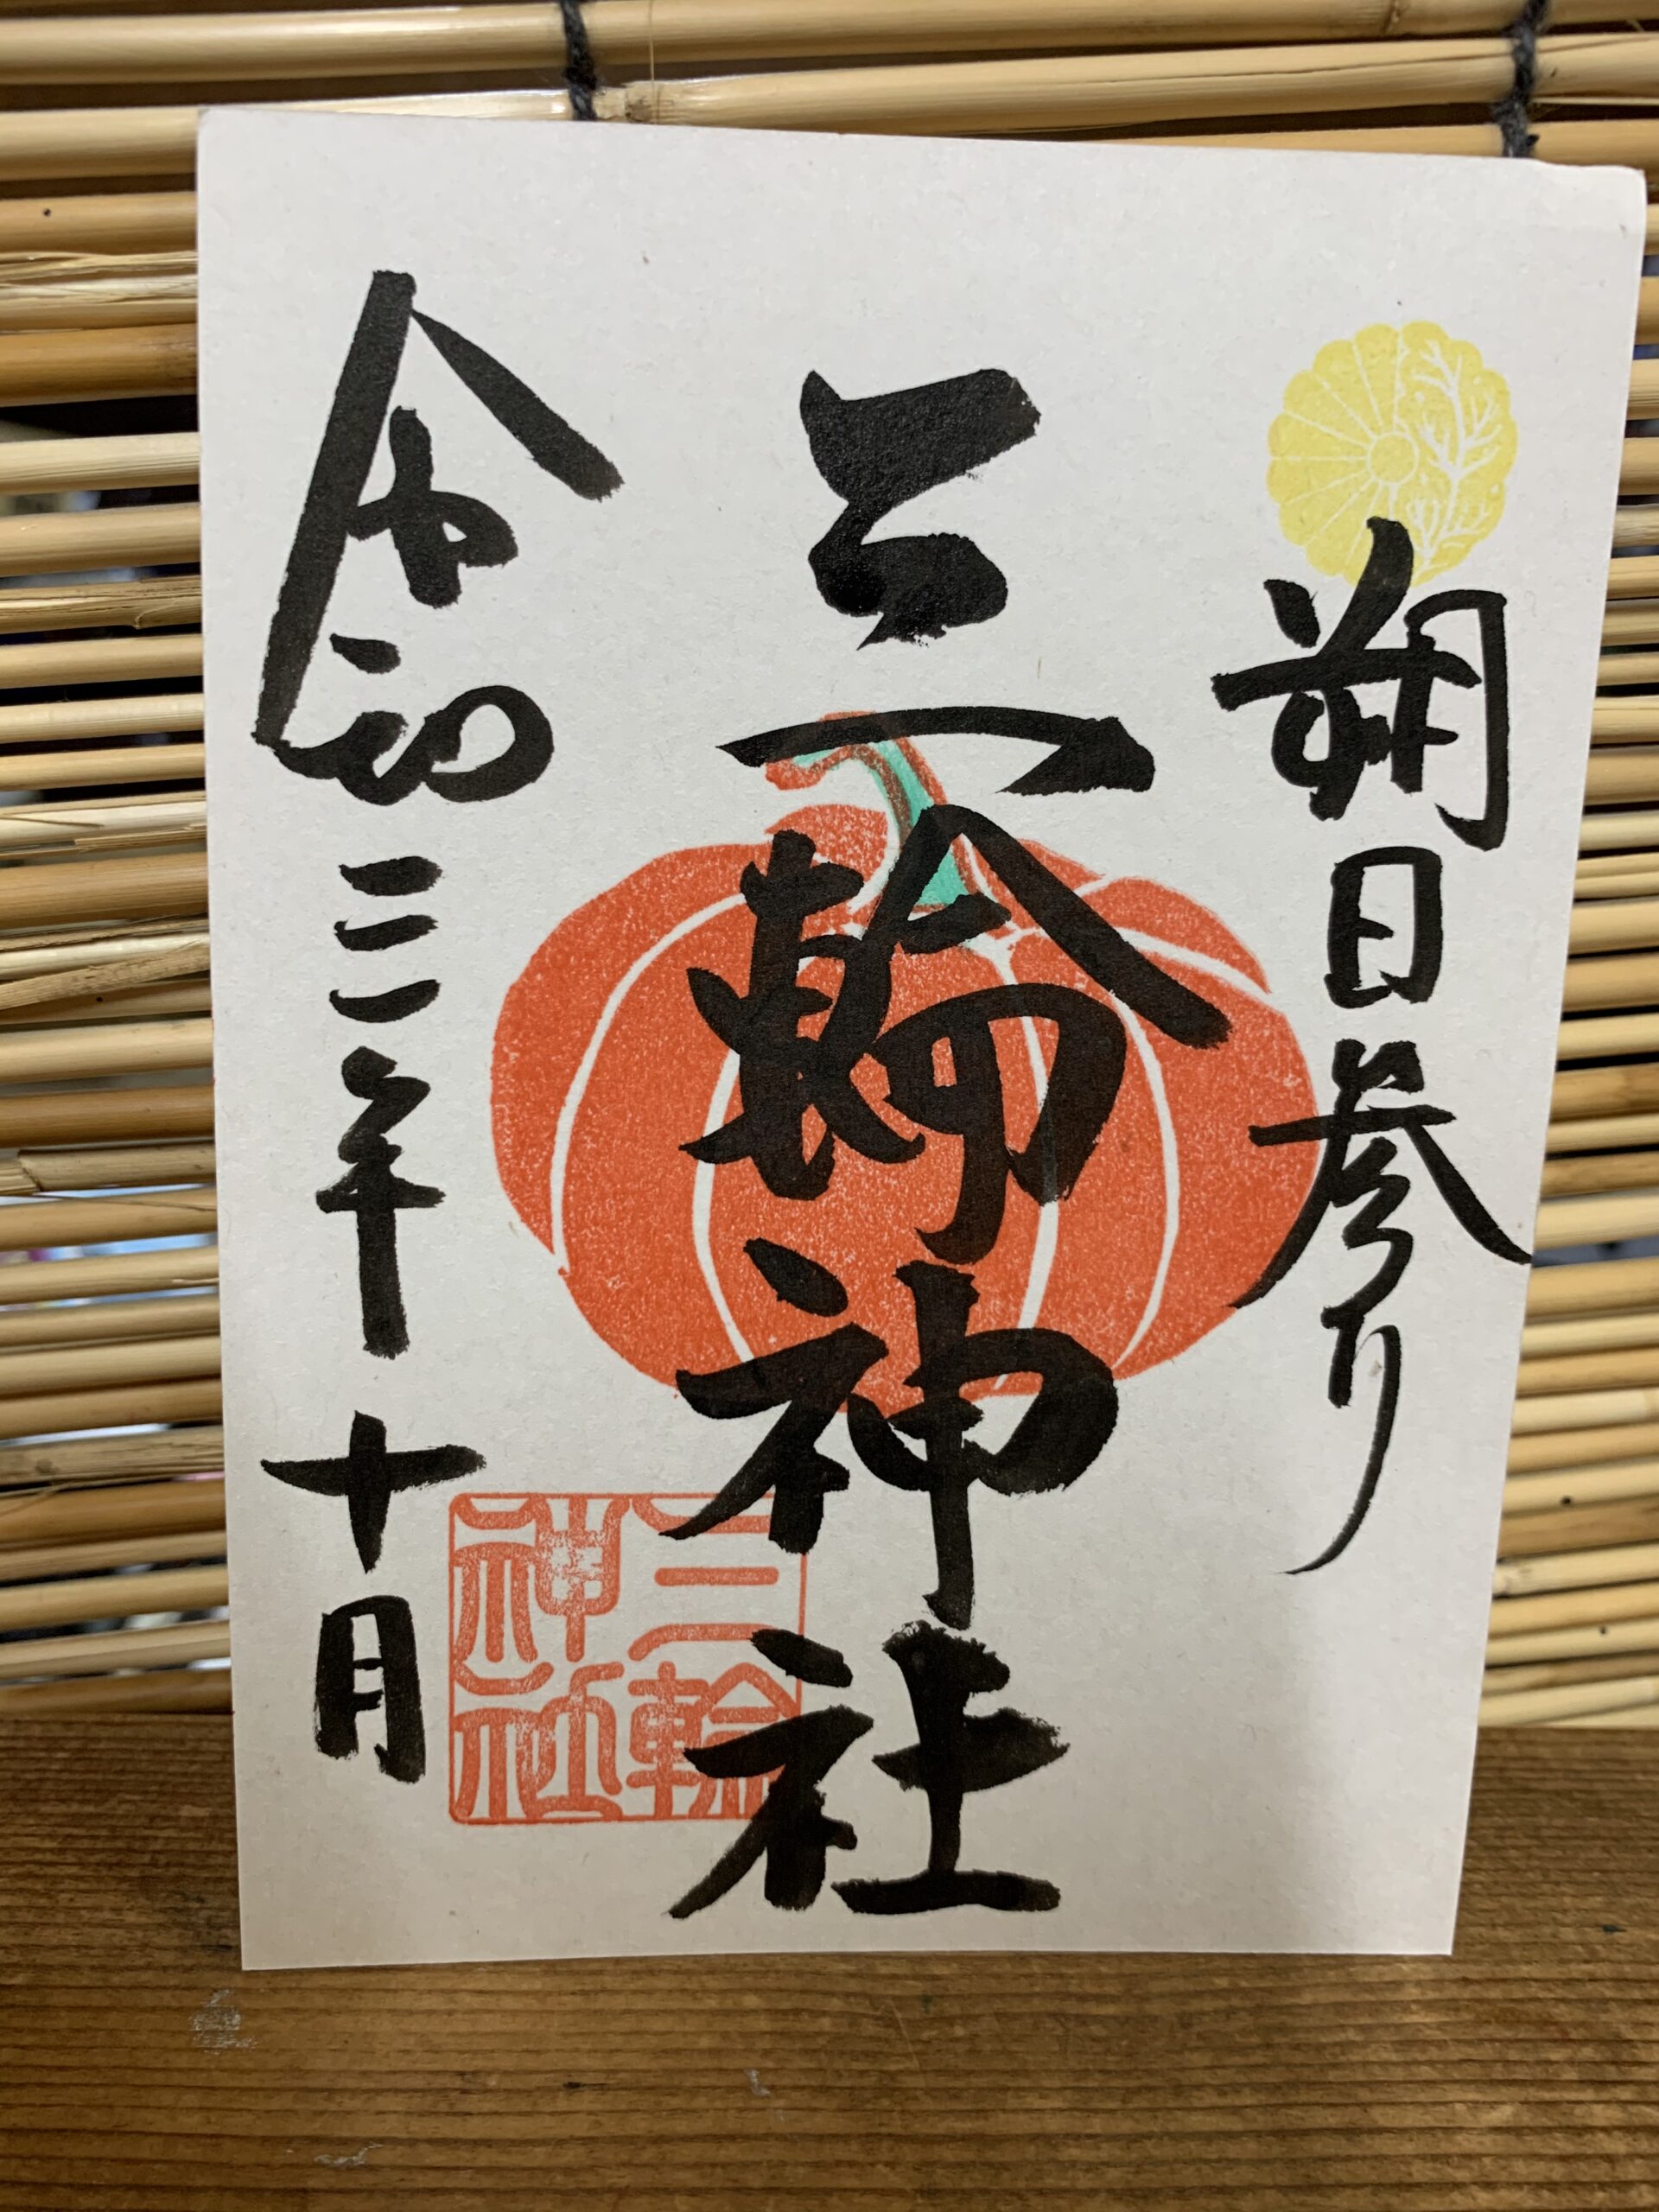 朔日参り
三輪神社
令和三年 十月
三輪神社